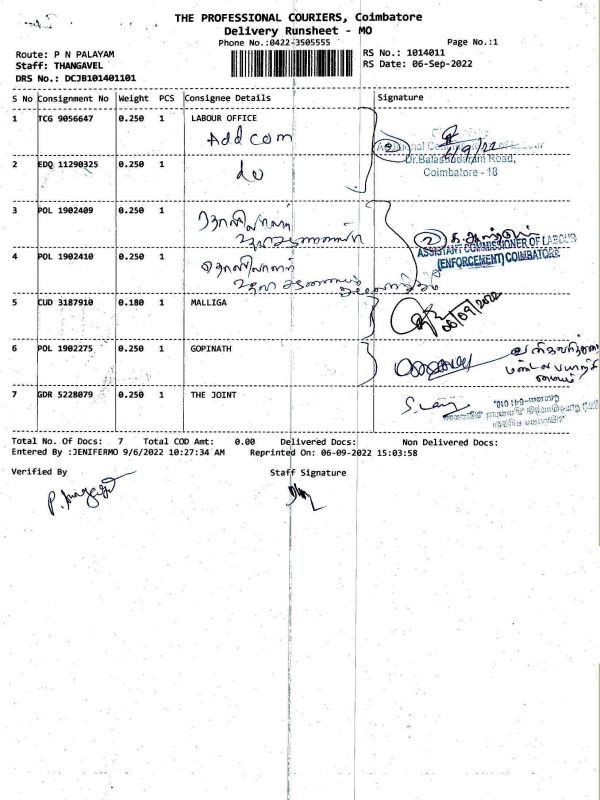 THE PROFESSIONAL COURIERS, Coimbatore
Delivery Runsheet - MO
Phone No.:0422-3505555 Page No.:1
Route: P N PALAYAM RS No.: 1014011
Staff: THANGAVEL RS Date: 06-Sep-2022
DRS No.: DCJB101401101
S No Consignment No Weight PCS Consignee Details Signature
1 TCG 9056647 0.250 1 LABOUR OFFICE
Add com
Additional Labour
Dr.Balasundaram Road,
Coimbatore - 18
2 EDQ 11290325 0.250 1 do
3 POL 1902409 0.250 1
2
ASSISTANT COMMISSIONER OF LABOUR
(ENFORCEMENT) COIMBATORE
4 POL 1902410 0.250 1
5 CUD 3187910 0.180 1 MALLIGA
06/09/2022
6 POL 1902275 0.250 1 GOPINATH
7 GDR 5228079 0.250 1 THE JOINT
Total No. Of Docs: 7 Total COD Amt: 0.00 Delivered Docs: Non Delivered Docs:
Entered By :JENIFERMO 9/6/2022 10:27:34 AM Reprinted On: 06-09-2022 15:03:58
Verified By Staff Signature